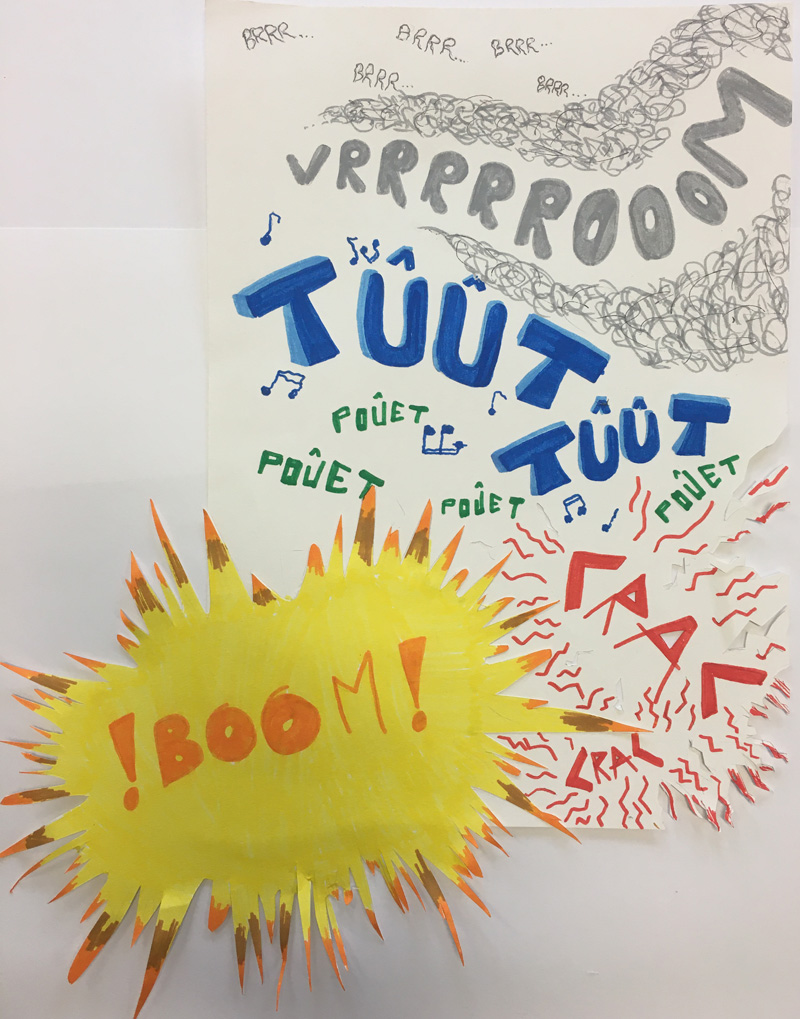 BRRR...
BRRR...
BRRR...
BRRR...
BRRR...
VRRRRROOOM
TÛÛT
TÛÛT
POÛET
POÛET
POÛET
POÛET
CRAC
CRAC
!BOOM!